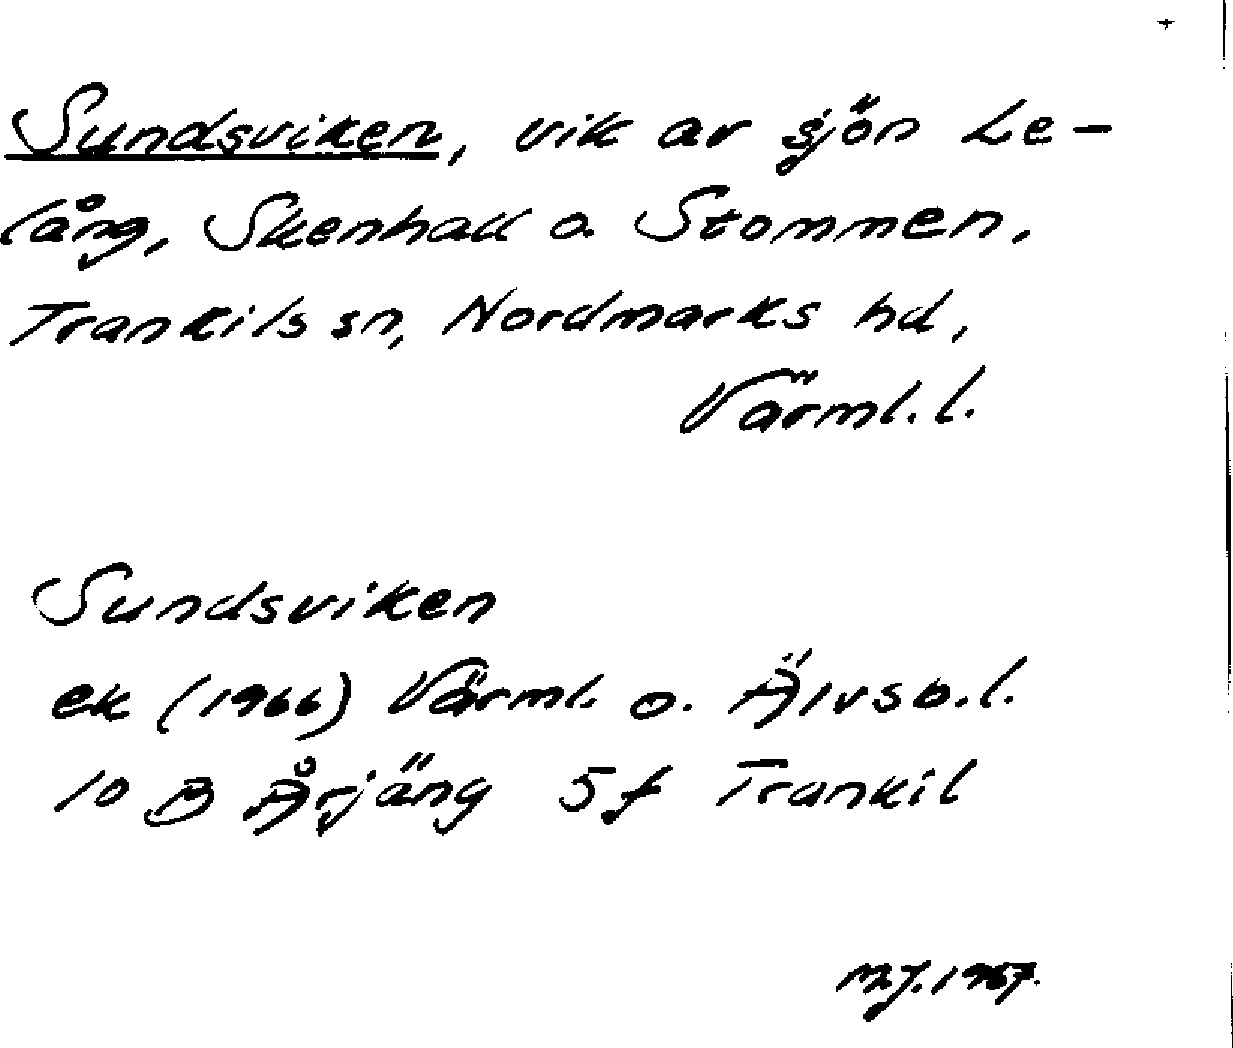 Sundsviken, vik av sjön Le-
lång, Skenhall o. Stommen,
Trankils sn, Nordmarks hd,
Värml. l.
Sundsviken
ek (1966) Värml. o. Älvsb. l.
10 B Årjäng 5 f Trankil
M.J. 1967.